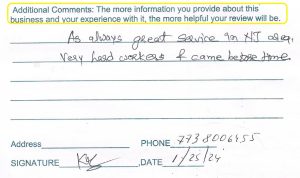 Additional Comments: The more information you provide about this
business and your experience with it, the more helpful your review will be.
As always great service in NJ area.
Very hard workers & came before time.
Address
PHONE 7738006455
SIGNATURE
,DATE 1/25/24